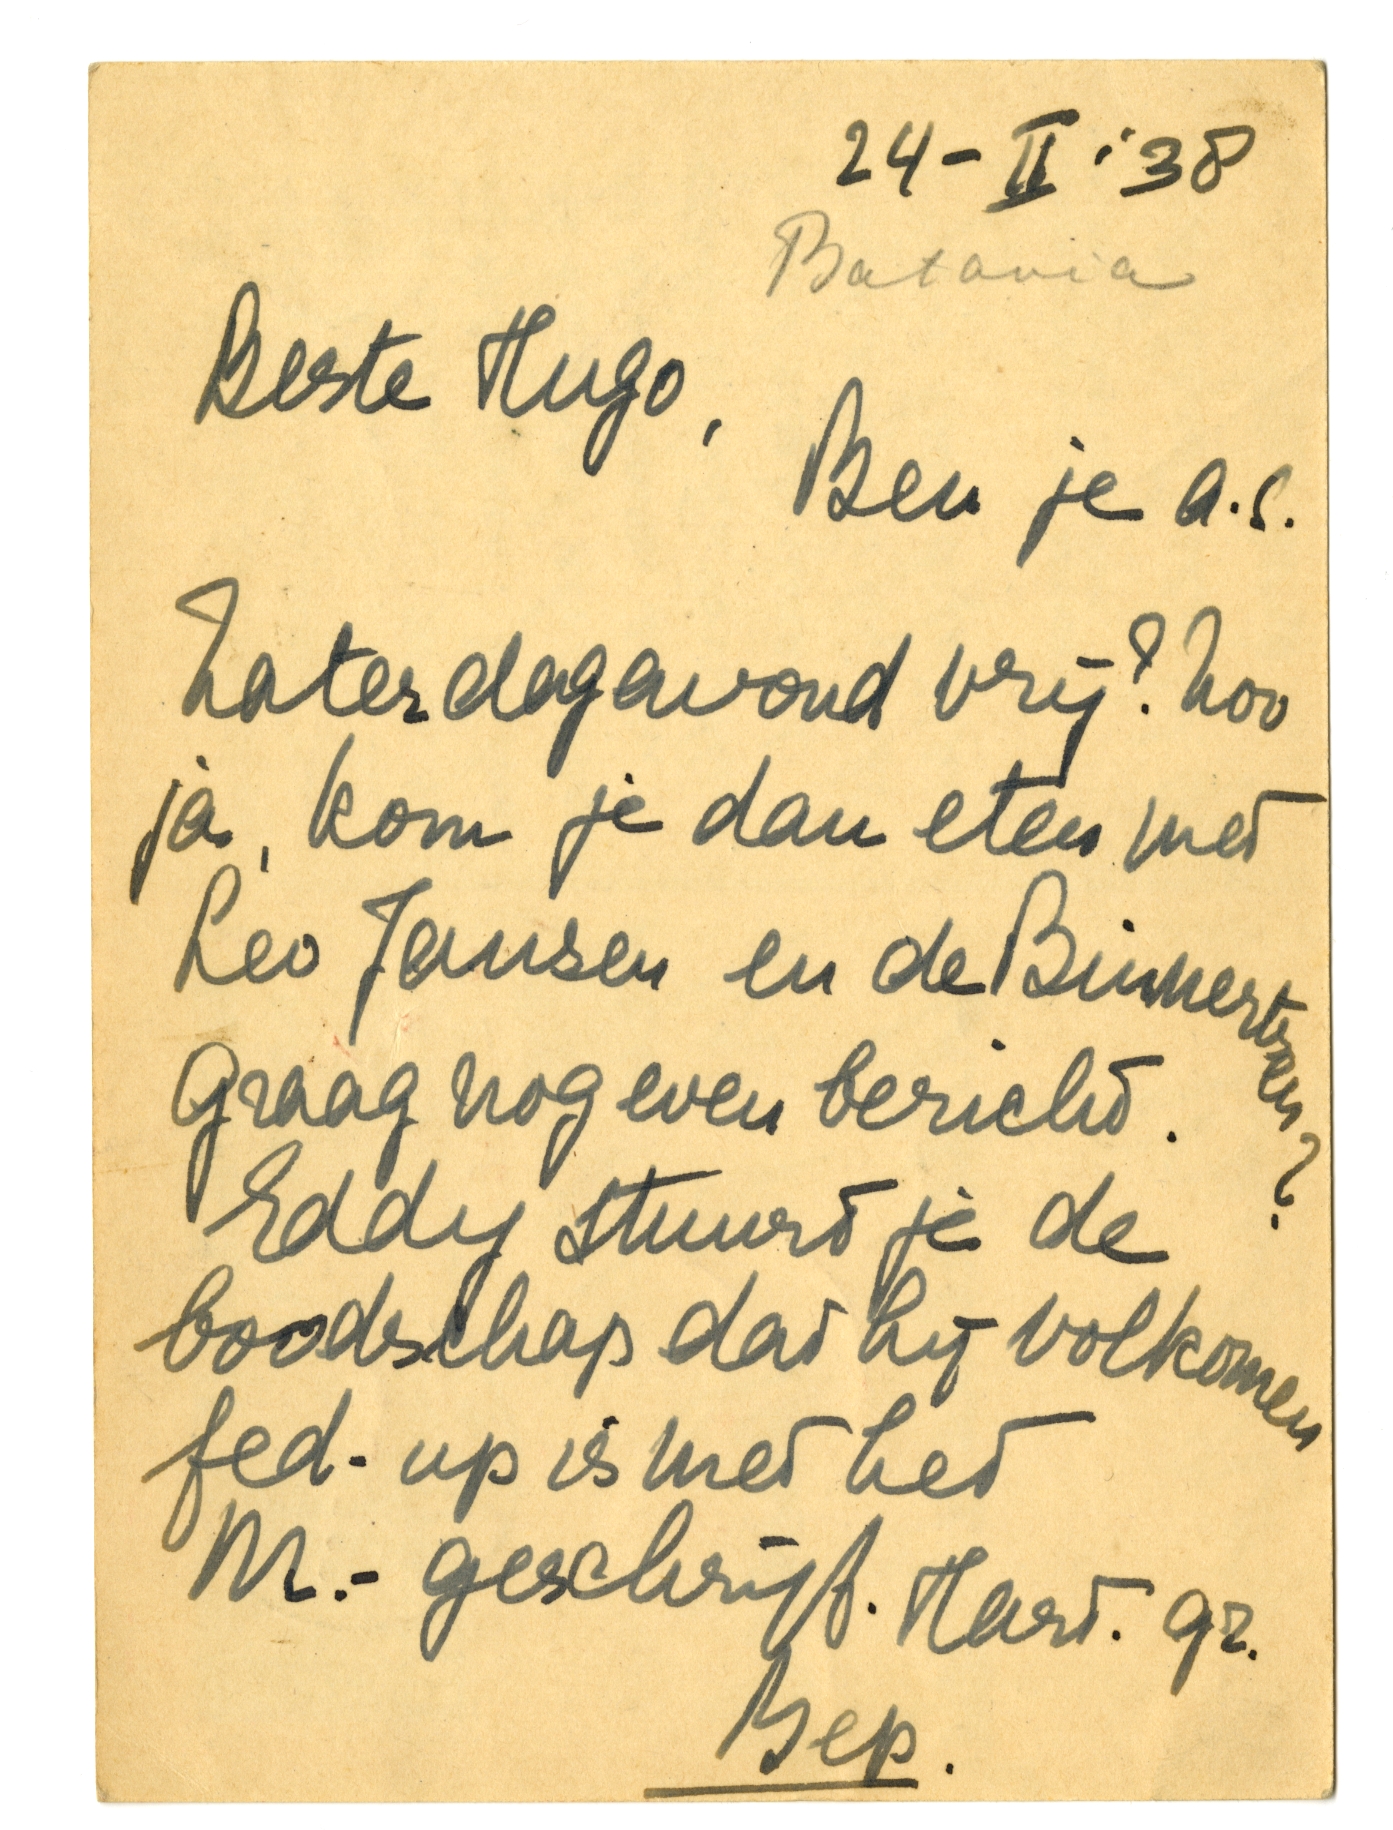 24-II-'38
Batavia
Beste Hugo,
Ben je a.s.
Zaterdagavond vrij? Zoo
ja, kom je dan eten met
Leo Jansen en de Binnertsen?
Graag nog even bericht.
Eddy stuurt je de
boodschap dat hij volkomen
fed-up is met het
M.-geschrijf. Hart. gr.
Bep.